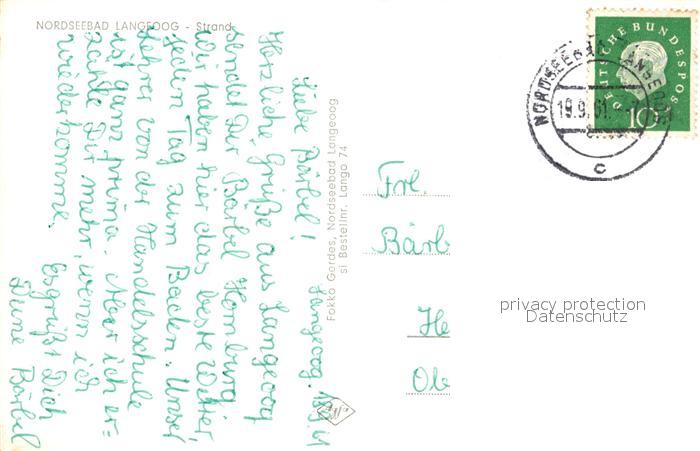 NORDSEEBAD LANGEOOG - Strand
Langeoog. 18.9.61
Liebe Bärbel!
Herzliche Grüße aus Langeoog
sendet Dir Bärbel Homburg
Wir haben hier das beste Wetter,
jeden Tag zum Baden. Unser
Lehrer von der Handelsschule
ist ganz prima. Aber ich er-
zähle Dir mehr, wenn ich
wiederkomme.
Es grüßt Dich
Deine Bärbel
Fokko Gerdes, Nordseebad Langeoog
si Bestellnr. Lango 74
DEUTSCHE BUNDESPOST
10
NORDSEEBAD LANGEOOG
19.9.61
c
Frl.
Bärb
He
Ob
privacy protection
Datenschutz